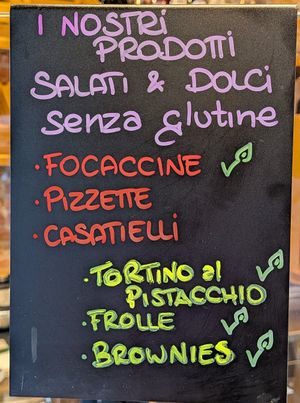 I NOSTRI
PRODOTTI
SALATI & DOLCI
senza glutine
• FOCACCINE
• PIZZETTE
• CASATIELLI
• TORTINO al
PISTACCHIO
• FROLLE
• BROWNIES